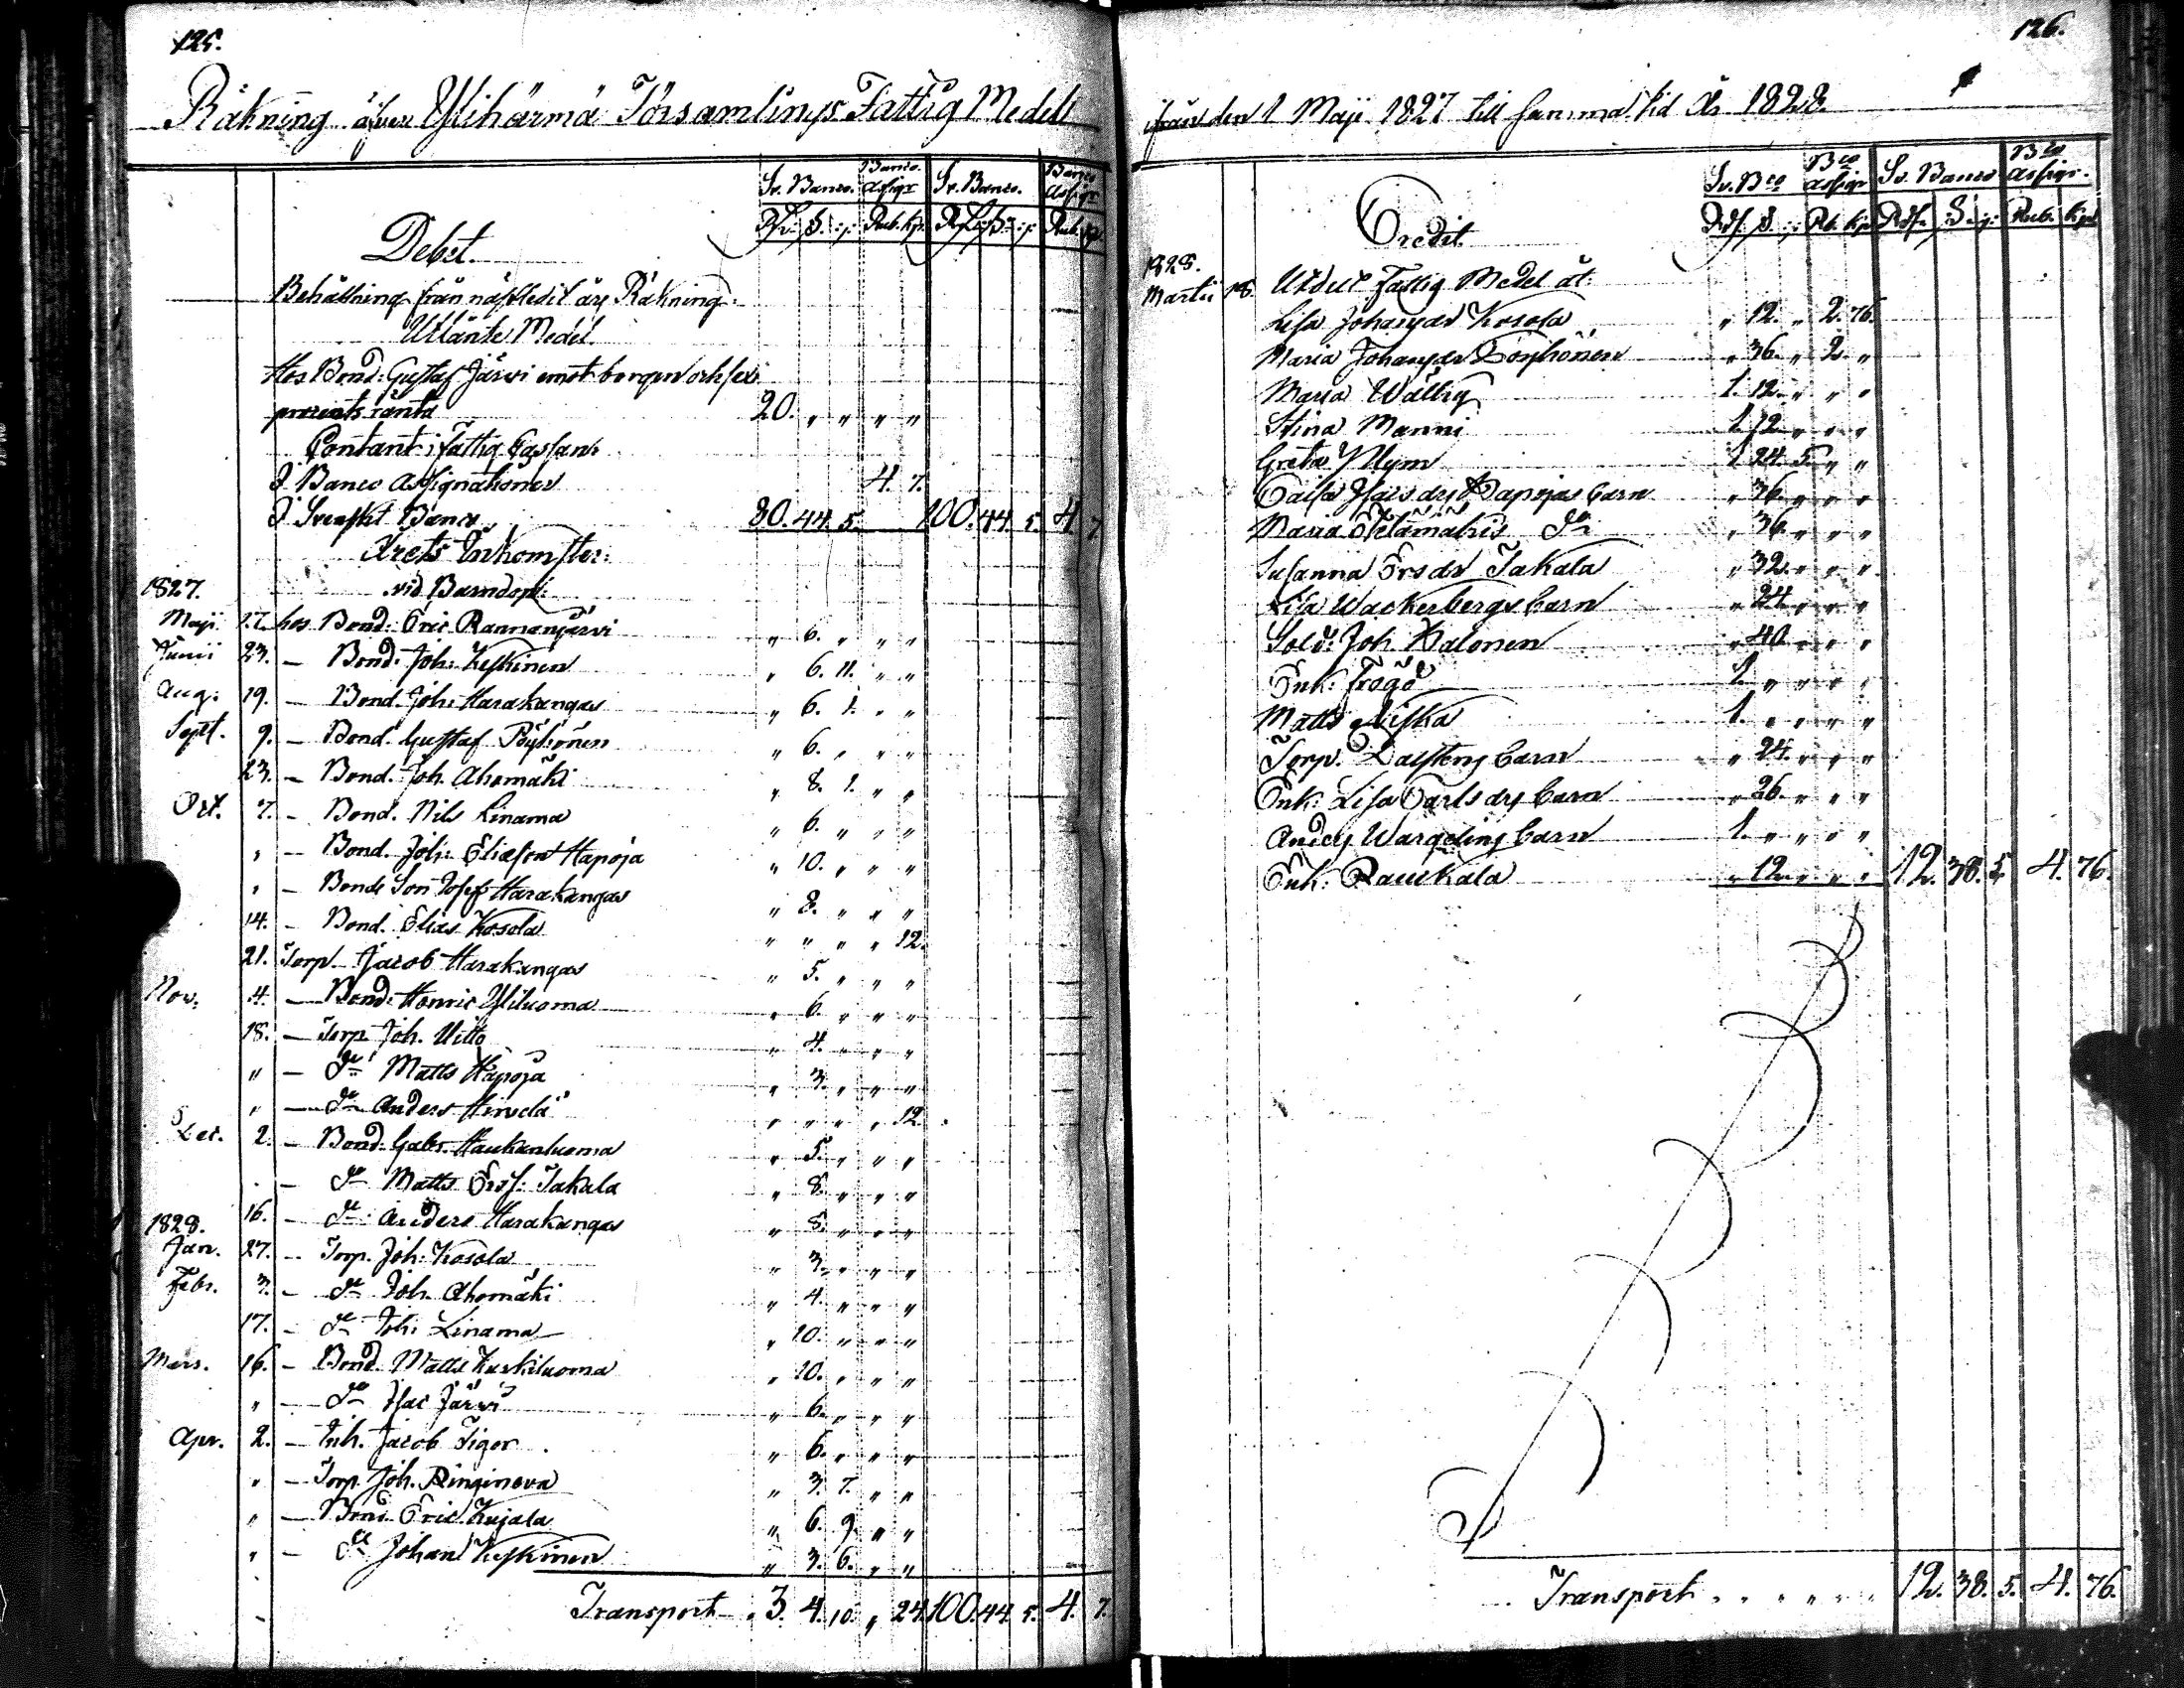 125.
Räkning öfver Ylihärmä Församlings Fattig Medel
Sv. Banco. Banco Assign:r Sv. Banco. Banco Assign:r
Rdr. S. :/: Rub. Kp. Rdr S. :/: Rub. Kp.
Debet.
Behållning från näst ledit års Räkning.
Utlånte Medel.
Hos Bond: Gustaf Järvi emot borgen och sex
procents ränta 20. " " " "
Contant i Fattig Cassan.
I Banco Assignationer 4. 7.
I Svenskt Banco 80. 44. 5. 100. 44. 5. 4. 7.
Årets Inkomster:
1827. vid Barndop:
Maji 17. hos Bond: Eric Rannanjärvi " 6. " " "
Junii 23. – Bond: Joh: Keskinen " 6. 11. " "
Aug: 19. – Bond. Joh: Harakangas " 6. 1. " "
Sept. 9. – Bond. Gustaf Pöyhönen " 6. " " "
23. – Bond. Joh. Ahomäki " 8. 1. " "
Oct. 7. – Bond. Nils Linama " 6. " " "
" – Bond. Joh: Eliasson Hapoja " 10. " " "
" – Bonde Son Josef Harakangas " 8. " " "
14. – Bond. Elias Kosola " " " " 12.
21. Torp. Jacob Harakangas " 5. " " "
Nov. 4. – Bond: Henric Yliluoma " 6. " " "
18. – Torp Joh. Uitto " 4. " " "
" – D:o Matts Hapoja " 3. " " "
" – D:o Anders Hirvelä " " " " 12.
Dec. 2. – Bond: Gabr. Haukanluoma " 5. " " "
– D:o Matts Ersf: Takala " 8. " " "
16. – D:o Anders Harakangas " 8. " " "
1828.
Jan. 27. – Torp. Joh: Kosola " 3. " " "
Febr. 3. – D:o Joh. Ahomäki " 4. " " "
17. – D:o Joh: Linama " 10. " " "
Mars. 16. – Bond. Matts Kuskiluoma " 10. " " "
" – D:o Isac Järvi " 6. " " "
Apr. 2. – Inh. Jacob Tiger " 6. " " "
" – Torp. Joh. Ringineva " 3. 7. " "
" – Bond. Eric Kujala " 6. 9. " "
" – D:o Johan Keskinen " 3. 6. " "
Transport 3. 4. 10. " 24 100. 44. 5. 4. 7.
126.
ifrån den 1 Maji 1827 till samma tid År 1828.
Sv. Bco Bco Assigr Sv. Banco Bco Assigr.
Rdr. S. :/: Rb. Kp. Rdr. S. :/: Rub. Kp.
Credit.
1828.
Martii 18. Utdelt Fattig Medel åt:
Lisa Johansdr Kosola " 12. " 2. 76.
Maria Johansdr Pöyhönen " 36. " 2. "
Maria Wallig 1. 12. " " "
Stina Manni 1. 12. " " "
Greta Plym 1. 24. 5. " "
Caisa Isacsdrs Hapojas barn " 36. " " "
Maria Ketamäkis D:o " 36. " " "
Susanna Ersdr Takala " 32. " " "
Lisa Wackerbergs barn " 24. " " "
Sold: Joh. Halonen " 40. " " "
Enk: Frögö 1. " " " "
Matts Niska 1. " " " "
Torp. Dalstens barn " 24. " " "
Enk: Lisa Carlsdrs barn " 26. " " "
Anders Wargelins barn 1. " " " "
Enk: Raukala " 12. " " " 12. 38. 5. 4. 76.
Transport 12. 38. 5. 4. 76.